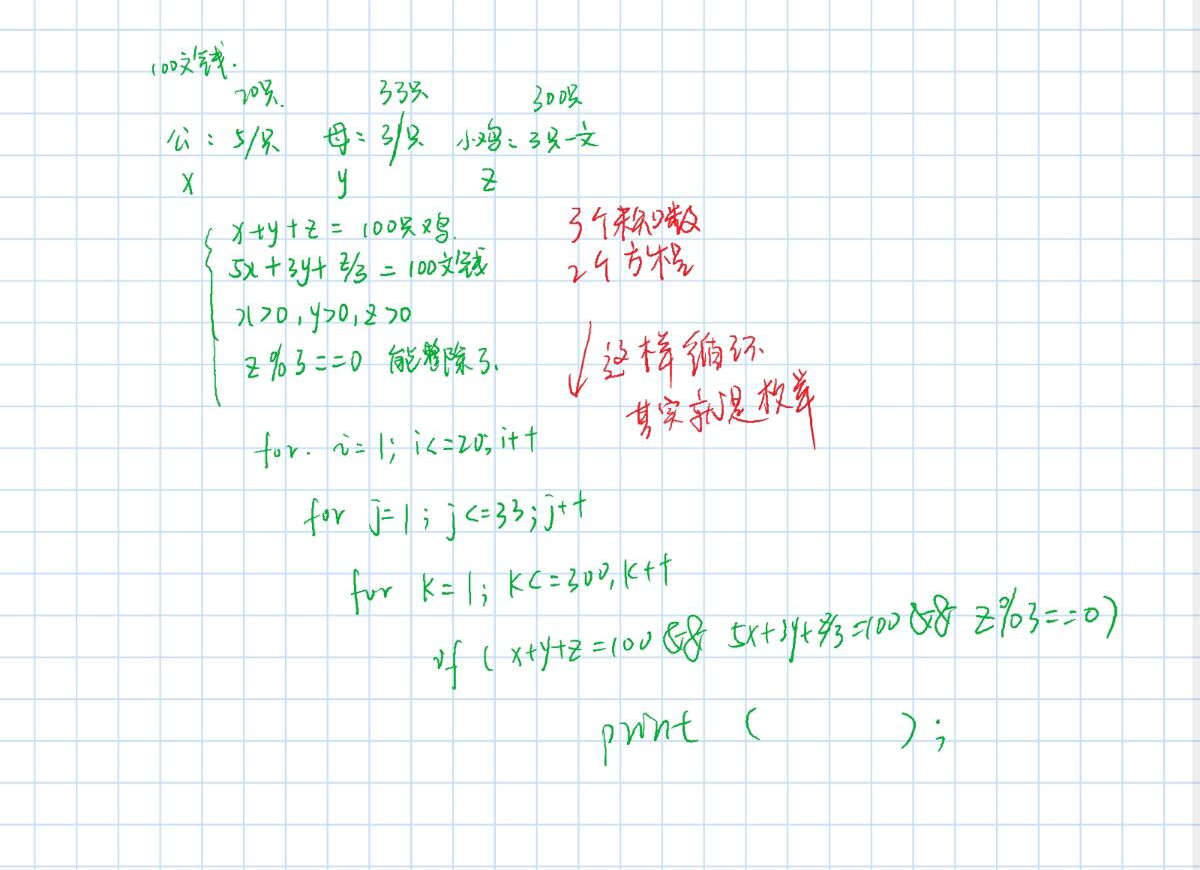 100文钱.
20只. 33只 300只
公: 5/只 母: 3/只 小鸡: 3只一文
x y z
x+y+z = 100只鸡.
5x + 3y + z/3 = 100文钱
x>0, y>0, z>0
z%3==0 能整除3.
3个未知数
2个方程
这样循环
其实就是枚举
for. i=1; i<=20; i++
for j=1; j<=33; j++
for k=1; k<=300, k++
if ( x+y+z=100 && 5x+3y+z/3=100 && z%3==0)
print ( );